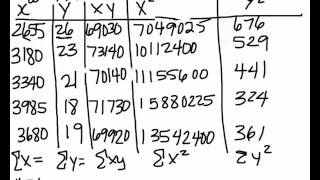 x y xy x² y²
2655 26 69030 7049025 676
3180 23 73140 10112400 529
3340 21 70140 11155600 441
3985 18 71730 15880225 324
3680 19 69920 13542400 361
Σx= Σy= Σxy Σx² Σy²